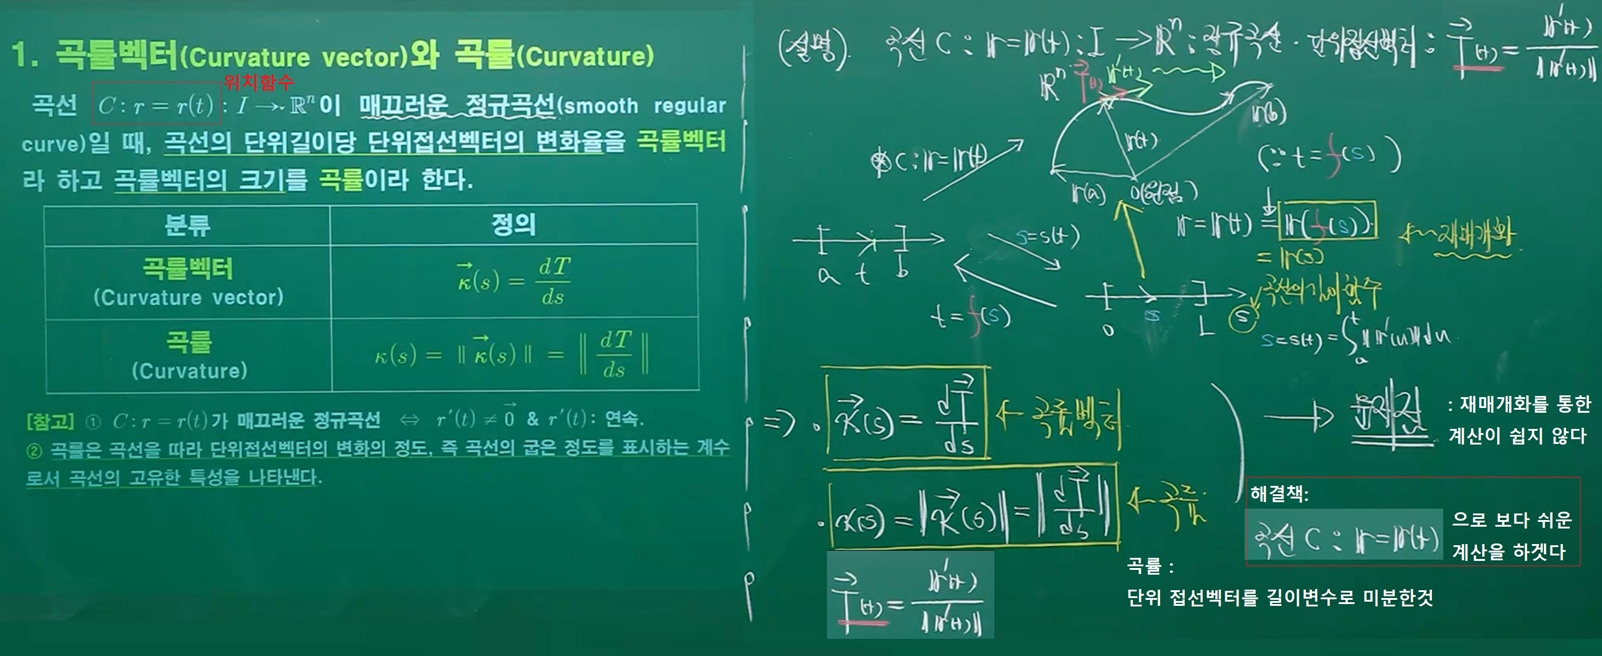 1. 곡률벡터(Curvature vector)와 곡률(Curvature)
위치함수
곡선 C : r = r(t) : I → ℝⁿ이 매끄러운 정규곡선(smooth regular
curve)일 때, 곡선의 단위길이당 단위접선벡터의 변화율을 곡률벡터
라 하고 곡률벡터의 크기를 곡률이라 한다.
분류 정의
곡률벡터
(Curvature vector)
κ⃗(s) = dT/ds
곡률
(Curvature)
κ(s) = ‖ κ⃗(s) ‖ = ‖ dT/ds ‖
[참고] ① C : r = r(t)가 매끄러운 정규곡선 ⇔ r′(t) ≠ 0⃗ & r′(t) : 연속.
② 곡률은 곡선을 따라 단위접선벡터의 변화의 정도, 즉 곡선의 굽은 정도를 표시하는 계수
로서 곡선의 고유한 특성을 나타낸다.
(설명). 곡선 C : r = r(t) : I → ℝⁿ : 정규곡선 · 단위접선벡터 : T⃗(t) = r′(t)/‖r′(t)‖
ℝⁿ T⃗(t) r′(t)
r(b)
r(t)
C : r = r(t)
r(a) 0(원점)
(∵ t = f(s))
r = r(t) = r(f(s)). ← 재매개화
= r(s)
a t b
s = s(t)
t = f(s)
0 s L s
곡선의 길이함수
s = s(t) = ∫ₐᵗ ‖r′(u)‖du
⇒ · κ⃗(s) = dT⃗/ds ← 곡률벡터
· κ(s) = ‖κ⃗(s)‖ = ‖dT⃗/ds‖ ← 곡률
T⃗(t) = r′(t)/‖r′(t)‖
→ 문제점 : 재매개화를 통한
계산이 쉽지 않다
해결책:
곡선 C : r = r(t) 으로 보다 쉬운
계산을 하겟다
곡률 :
단위 접선벡터를 길이변수로 미분한것